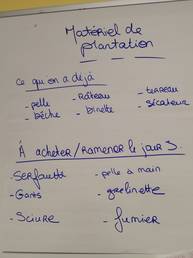 Matériel de
plantation
Ce qu'on a déjà
- pelle - Râteau - terreau
- bêche - binette - sécateur
À acheter/Ramener le jour J.
- SERfouette - pelle à main
- Gants - grelinette
- Sciure - fumier